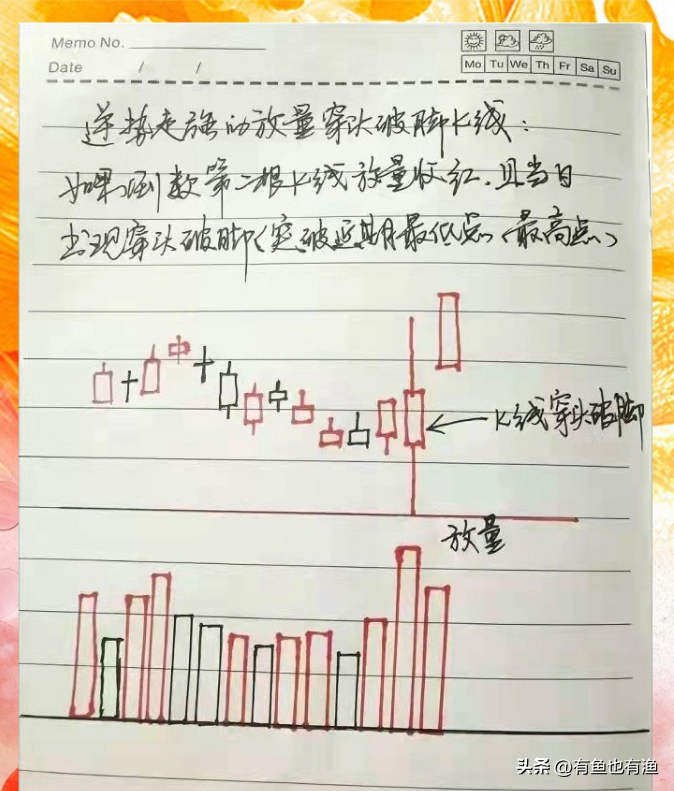 Memo No.
Date / /
Mo Tu We Th Fr Sa Su
逆势走强的放量穿头破脚K线:
如果倒数第二根K线放量收红.且当日
出现穿头破脚(突破近期最低点(最高点)
K线穿头破脚
放量
头条 @有鱼也有渔